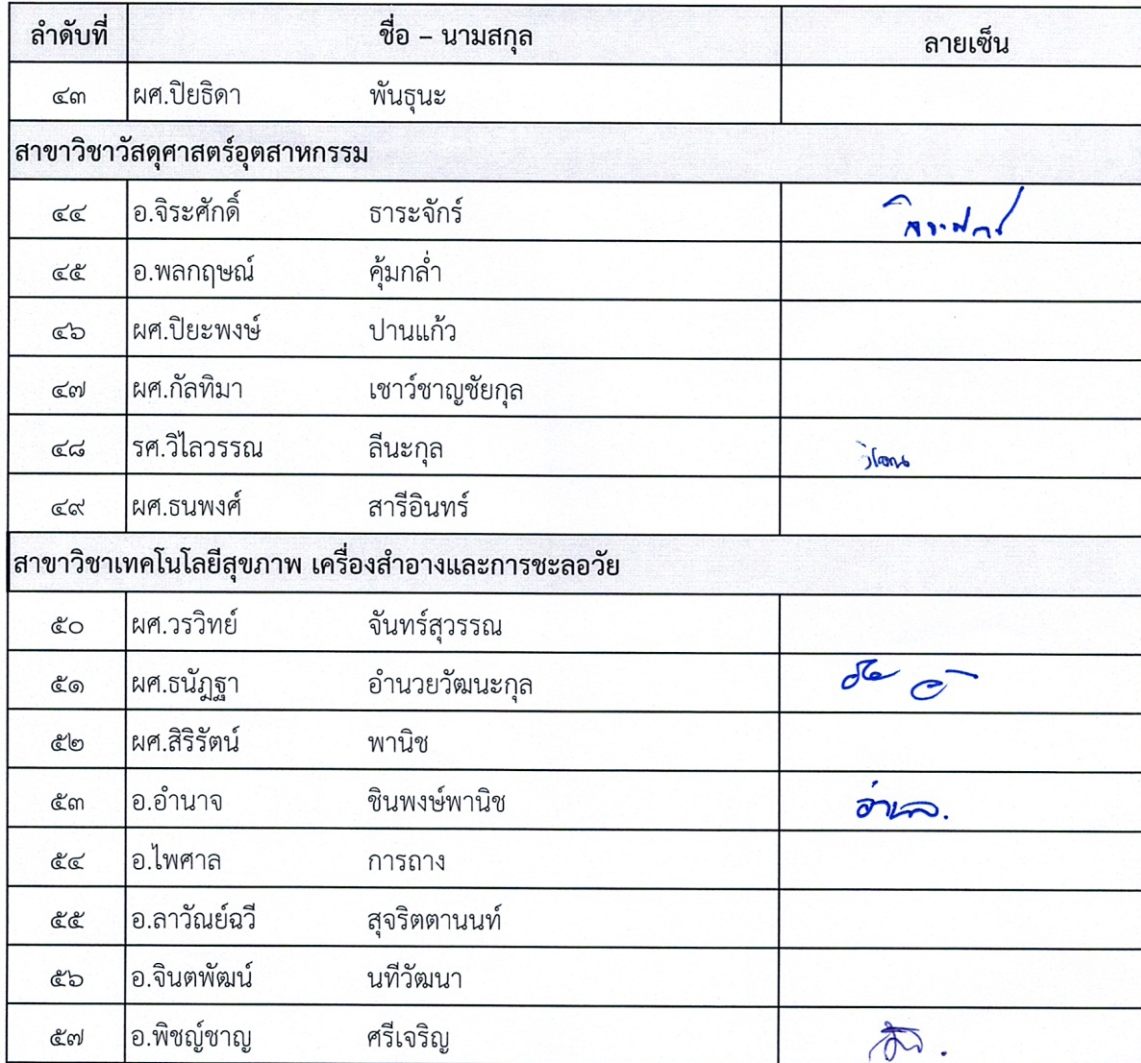 ลำดับที่ ชื่อ – นามสกุล ลายเซ็น
๔๓ ผศ.ปิยธิดา พันธุนะ
สาขาวิชาวัสดุศาสตร์อุตสาหกรรม
๔๔ อ.จิระศักดิ์ ธาระจักร์
๔๕ อ.พลกฤษณ์ คุ้มกล่ำ
๔๖ ผศ.ปิยะพงษ์ ปานแก้ว
๔๗ ผศ.กัลทิมา เชาว์ชาญชัยกุล
๔๘ รศ.วิไลวรรณ ลีนะกุล
๔๙ ผศ.ธนพงศ์ สารีอินทร์
สาขาวิชาเทคโนโลยีสุขภาพ เครื่องสำอางและการชะลอวัย
๕๐ ผศ.วรวิทย์ จันทร์สุวรรณ
๕๑ ผศ.ธนัฏฐา อำนวยวัฒนะกุล
๕๒ ผศ.สิริรัตน์ พานิช
๕๓ อ.อำนาจ ชินพงษ์พานิช
๕๔ อ.ไพศาล การถาง
๕๕ อ.ลาวัณย์ฉวี สุจริตตานนท์
๕๖ อ.จินตพัฒน์ นทีวัฒนา
๕๗ อ.พิชญ์ชาญ ศรีเจริญ